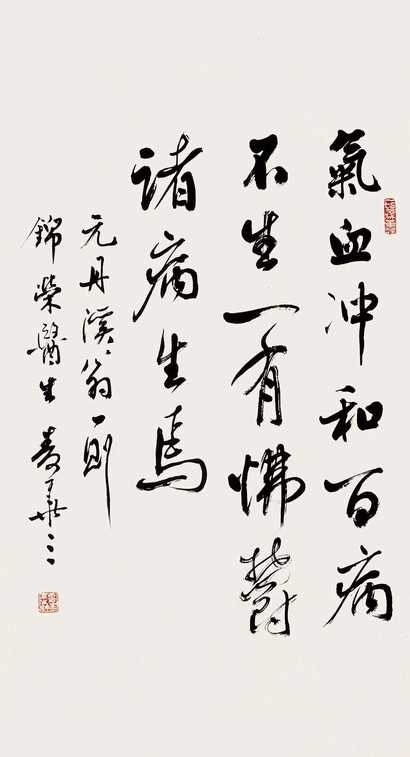 氣血沖和百病
不生一有怫鬱
諸病生焉
元丹溪翁一則
錦榮醫生